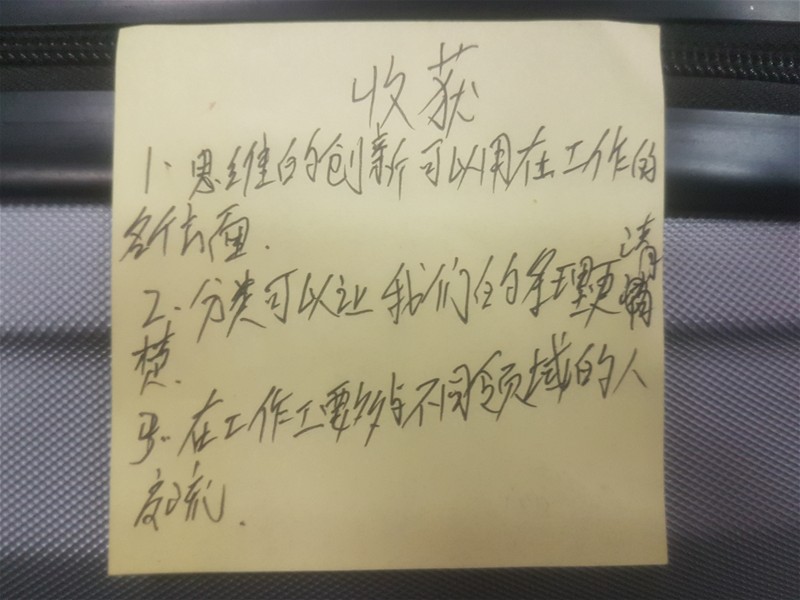 收获
1. 思维的创新可以用在工作的
各个方面.
2. 分类可以让我们的条理更清
楚.
3. 在工作工要多与不同领域的人
交流.